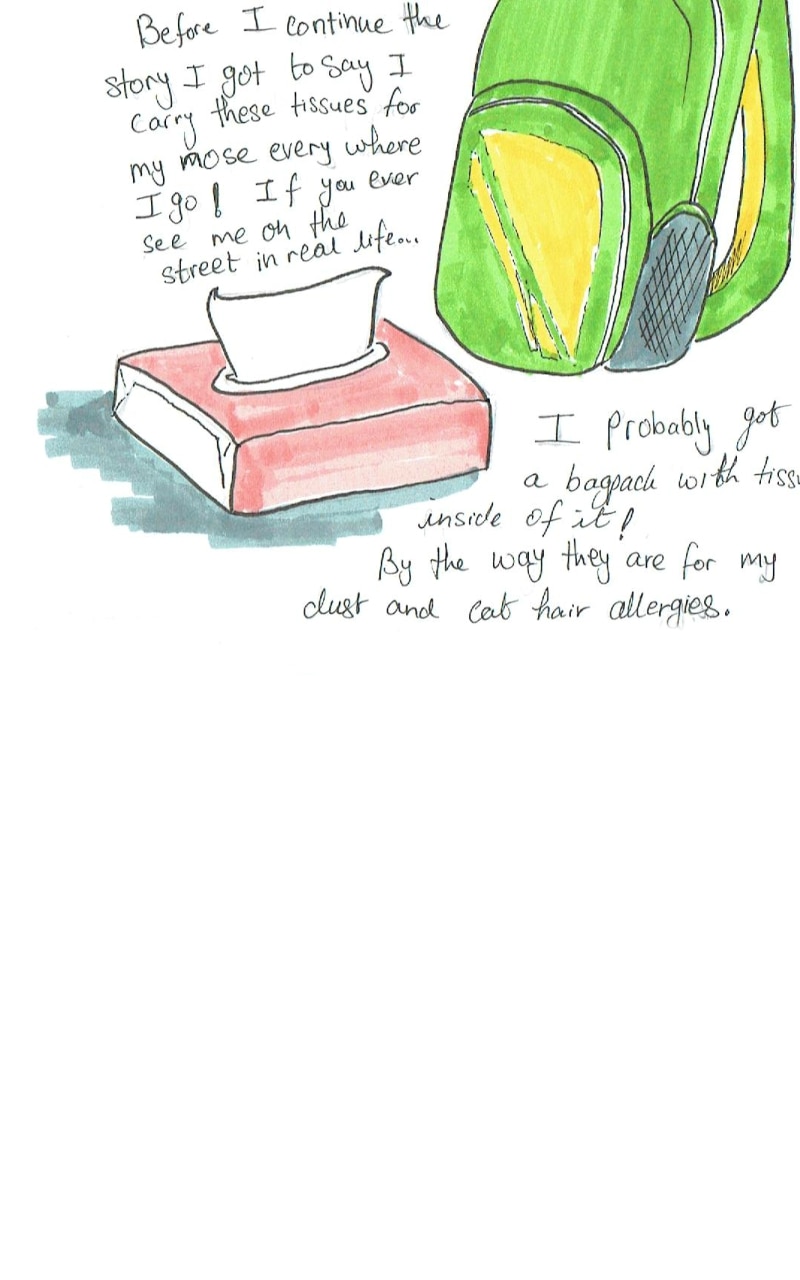 Before I continue the
story I got to say I
carry these tissues for
my mose every where
I go! If you ever
see me on the
street in real life...
I probably got
a bagpack with
inside of it!
By the way they are for my
dust and cat hair allergies.